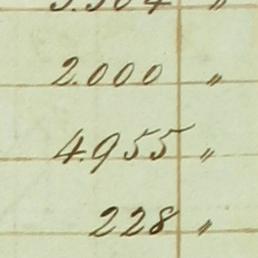 2.000 "
4.955 "
228 "